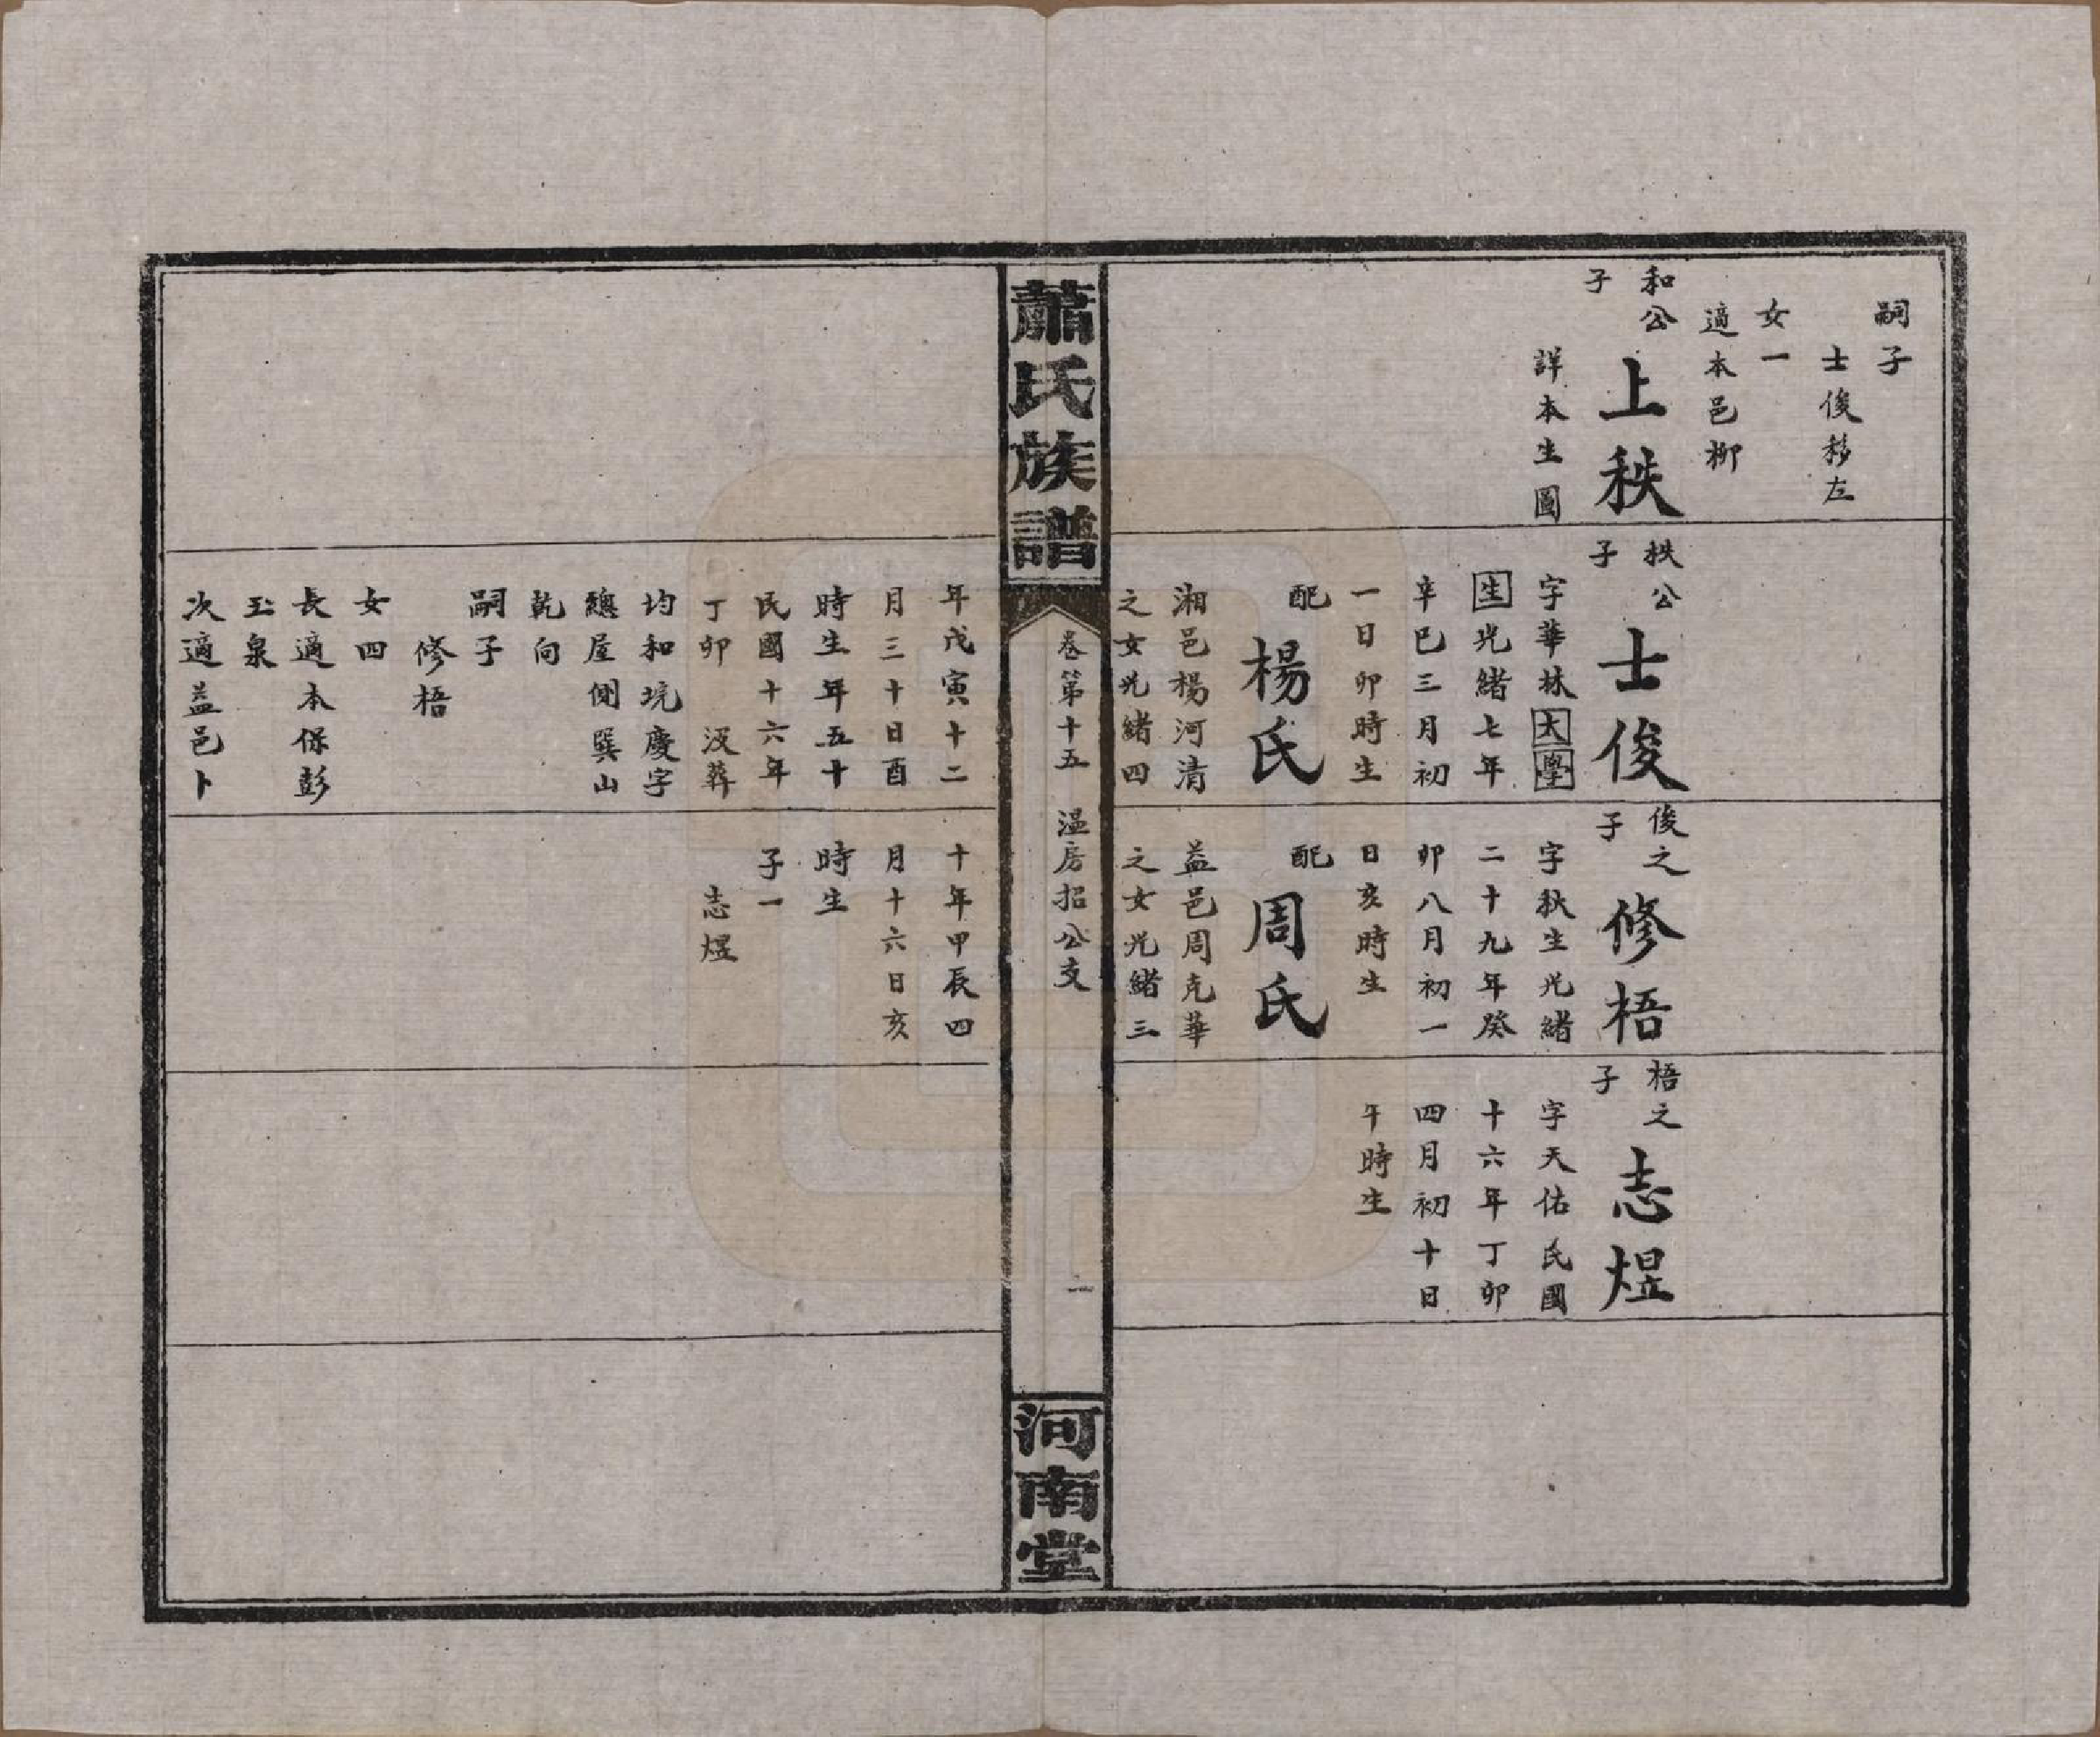 嗣子
士俊移左
女一
適本邑柳
和公
子
上秩
詳本生圖
秩公
子
士俊
字華林太學
生光緒七年
辛巳三月初
一日卯時生
配
楊氏
湘邑楊河清
之女光緒四
俊之
子
修梧
字秋生光緒
二十九年癸
卯八月初一
日亥時生
配
周氏
益邑周克華
之女光緒三
梧之
子
志煜
字天佑民國
十六年丁卯
四月初十日
午時生
蕭氏族譜
卷第十五 溫房招公支
二
河南堂
年戊寅十二
月三十日酉
時生年五十
民國十六年
丁卯 沒葬
均和垸慶字
總屋側巽山
乾向
嗣子
修梧
女四
長適本保彭
玉泉
次適益邑卜
十年甲辰四
月十六日亥
時生
子一
志煜